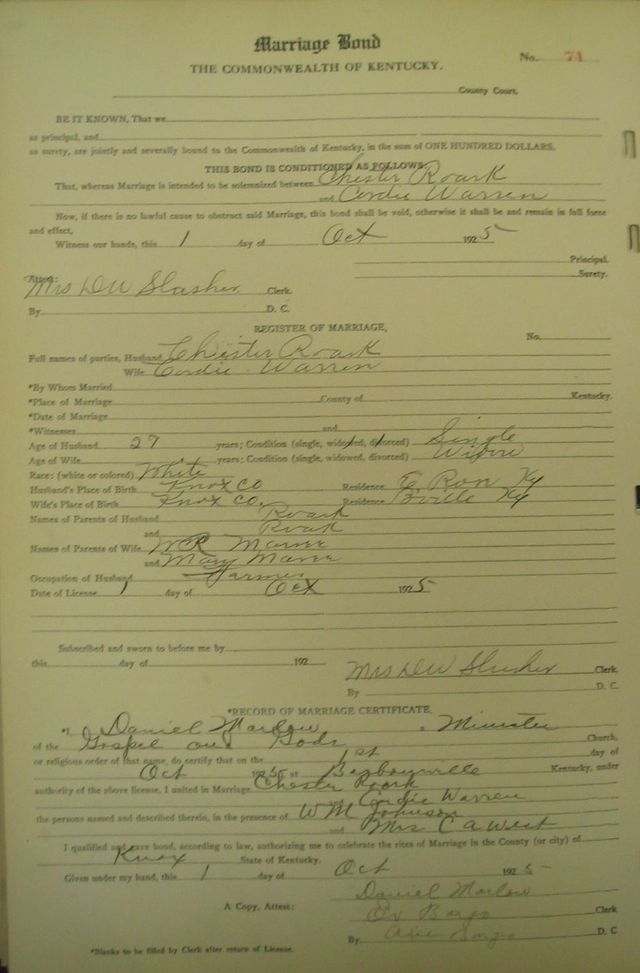 Marriage Bond
No. 71
THE COMMONWEALTH OF KENTUCKY.
County Court.
BE IT KNOWN, That we
as principal, and
as surety, are jointly and severally bound to the Commonwealth of Kentucky, in the sum of ONE HUNDRED DOLLARS.
THIS BOND IS CONDITIONED AS FOLLOWS:
That, whereas Marriage is intended to be solemnized between Chester Roark
and Cordie Warren
Now, if there is no lawful cause to obstruct said Marriage, this bond shall be void, otherwise it shall be and remain in full force
and effect,
Witness our hands, this 1 day of Oct 1925
Principal.
Surety.
Attest:
Mrs DW Slusher Clerk.
By D. C.
REGISTER OF MARRIAGE,
No.
Full names of parties, Husband Chester Roark
Wife Cordie Warren
*By Whom Married
*Place of Marriage County of Kentucky.
*Date of Marriage
*Witnesses and
Age of Husband 27 years; Condition (single, widowed, divorced) Single
Age of Wife years; Condition (single, widowed, divorced) Widow
Race: (white or colored) White
Husband's Place of Birth Knox Co Residence Ky
Wife's Place of Birth Knox Co. Residence B'ville Ky
Names of Parents of Husband Roark
and Roark
Names of Parents of Wife WR
and Mary
Occupation of Husband Farmer
Date of License 1 day of Oct 1925
Subscribed and sworn to before me by
this day of 192
Mrs DW Slusher Clerk.
By D. C.
*RECORD OF MARRIAGE CERTIFICATE,
*I, Daniel Marlow, Minister
of the Gospel Gods Church,
or religious order of that name, do certify that on the 1st day of
Oct 1925 at Barbourville Kentucky, under
authority of the above license, I united in Marriage Chester Roark
and Cordie Warren
the persons named and described therein, in the presence of WM Johnson
and Mrs C A West
I qualified and gave bond, according to law, authorizing me to celebrate the rites of Marriage in the County (or city) of
Knox State of Kentucky.
Given under my hand, this 1 day of Oct 1925
Daniel Marlow
A Copy, Attest: Clerk
By D. C
*Blanks to be filled by Clerk after return of License.